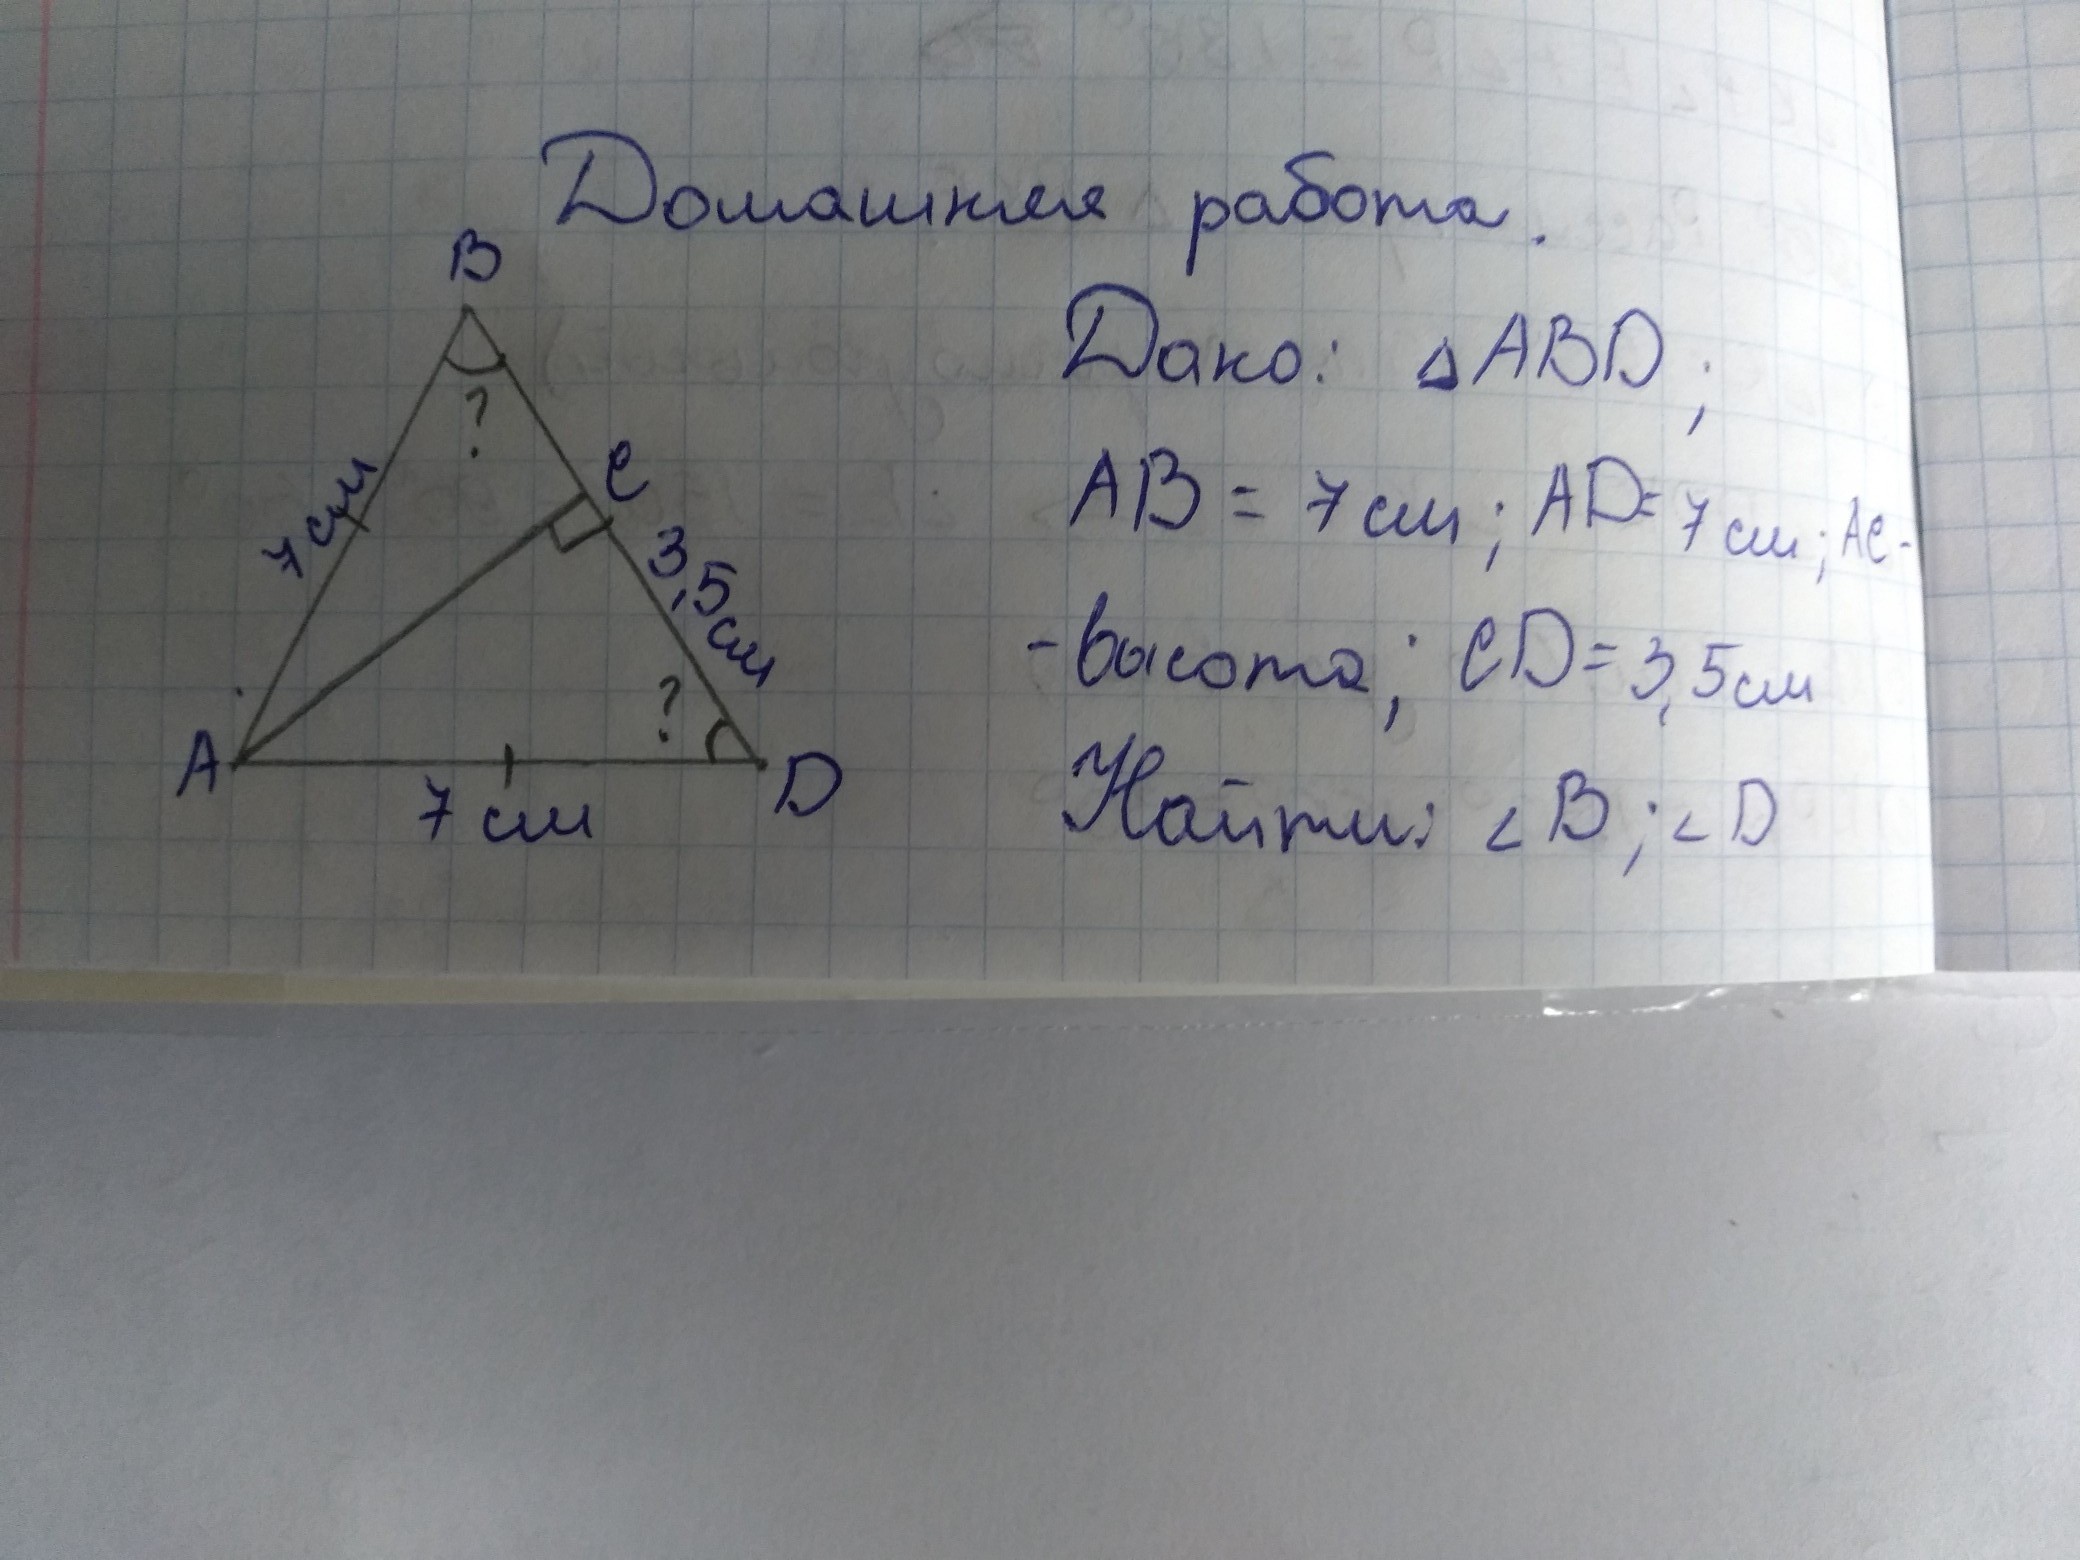 Домашняя работа.
B
Дано: △ABD;
?
C
7 см
AB = 7 см; AD = 7 см; AC -
3,5 см
- высота; CD = 3,5 см
?
A
D
7 см
Найти: ∠B; ∠D